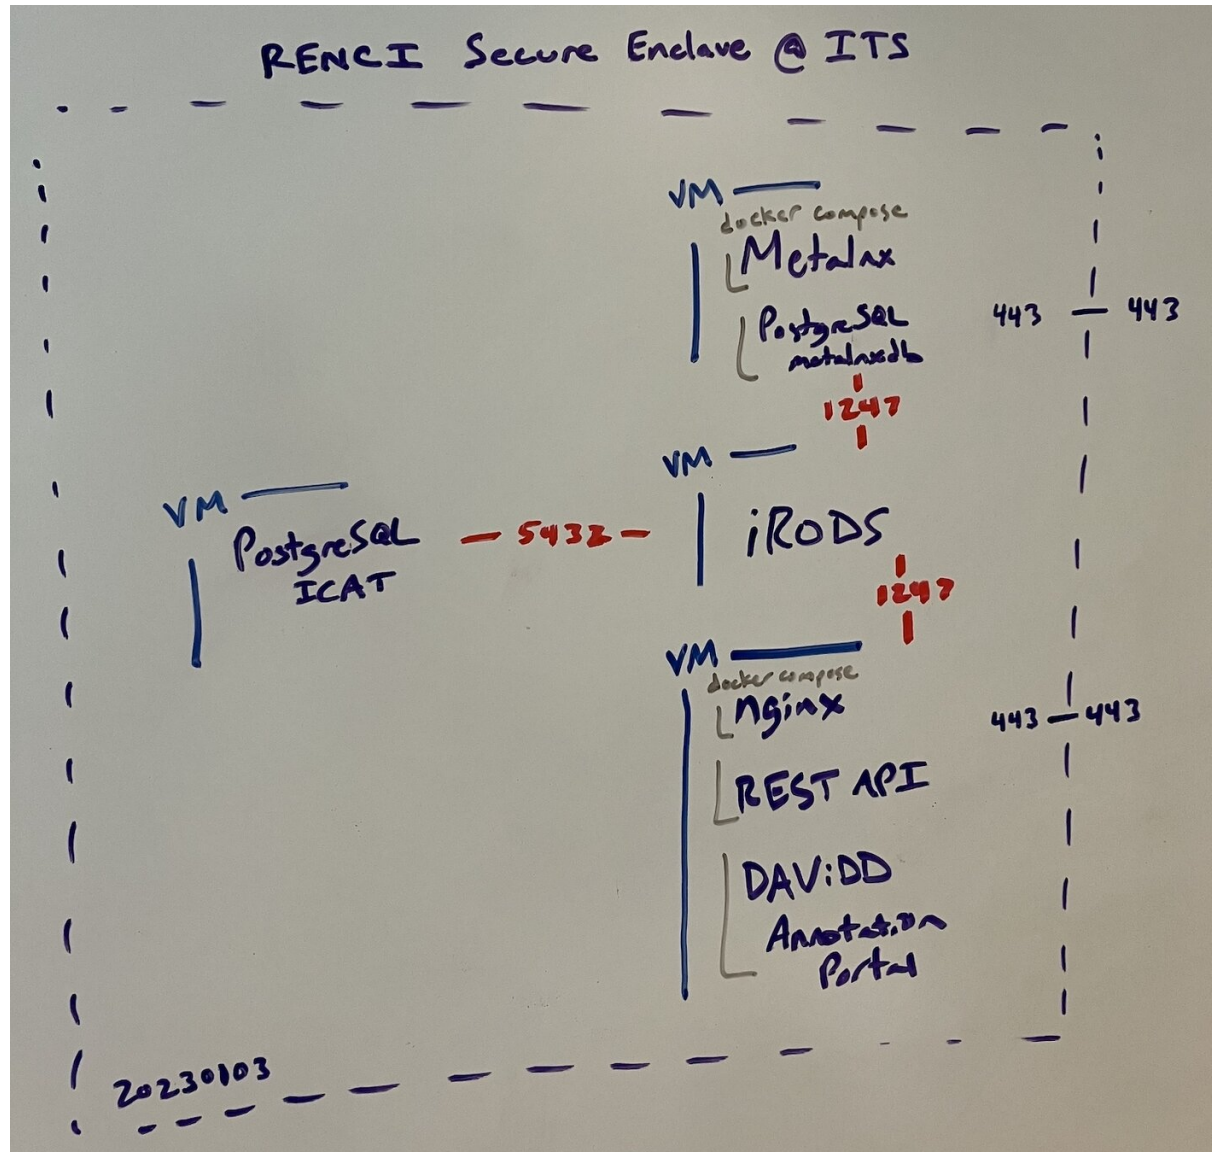 RENCI Secure Enclave @ ITS
VM
docker compose
Metalnx
PostgreSQL
metalnxdb
443 443
1247
VM
iRODS
VM
PostgreSQL
ICAT
5432
1247
VM
docker compose
nginx
443 443
REST API
DAViDD
Annotation
Portal
20230103